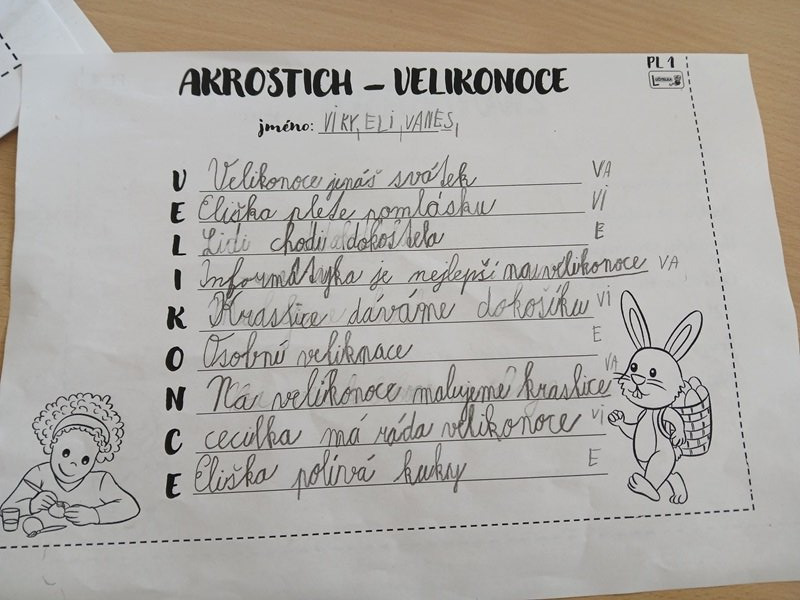 PL 1
AKROSTICH – VELIKONOCE
jméno: VIKY, ELI, VANES,
V Velikonoce jenáš svátek VA
E Eliška plete pomlásku VI
L Lidi chodí dokoštela E
I Informátyka je nejlepší navelikonoce VA
K Kraslice dáváme dokošíku VI
O Osobnú veliknace E
N Ná velikonoce malujeme kraslice VA
C cecilka má ráda velikonoce VI
E Eliška polívá kuky E